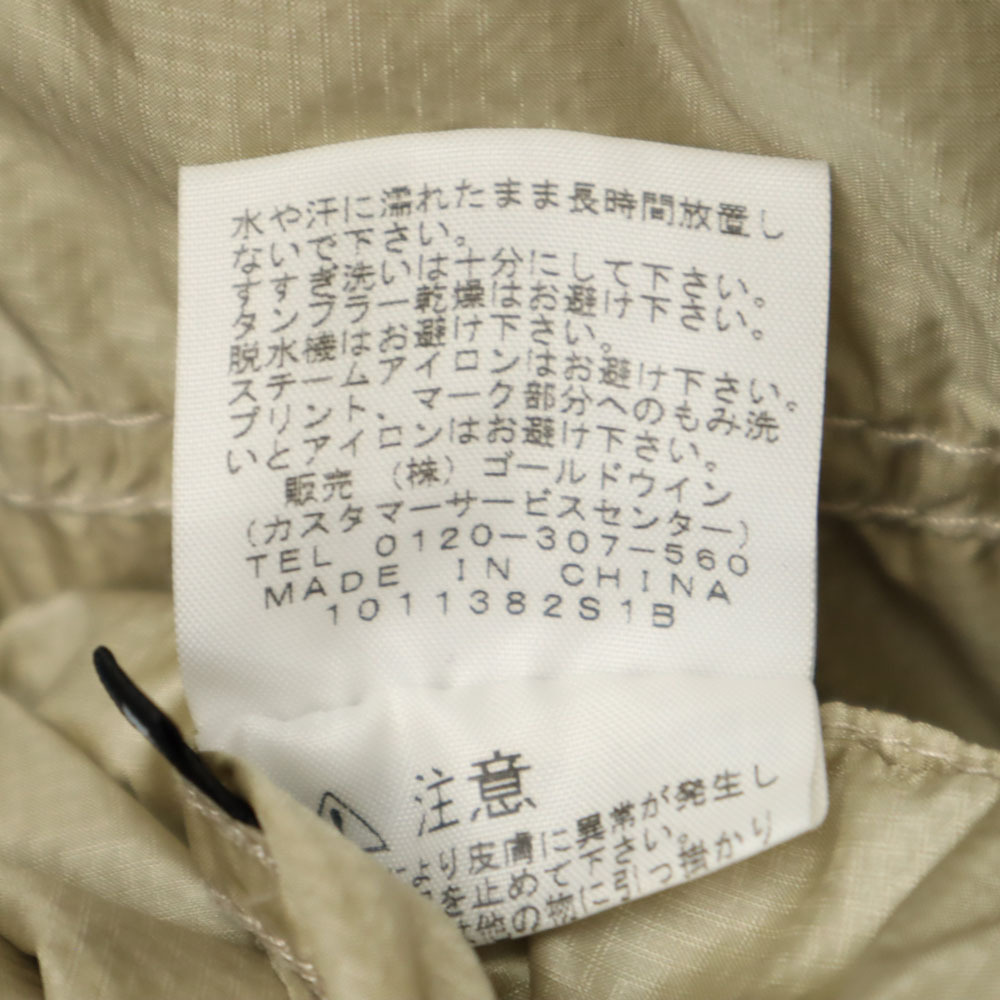 水や汗に濡れたまま長時間放置し
ないで下さい。
すすぎ洗いは十分にして下さい。
タンブラー乾燥はお避け下さい。
脱水機はお避け下さい。
スチームアイロンはお避け下さい。
プリント、マーク部分へのもみ洗
いとアイロンはお避け下さい。
販売 (株) ゴールドウイン
(カスタマーサービスセンター)
TEL 0120-307-560
MADE IN CHINA
1011382S1B
注意
より皮膚に異常が発生し
を止めて下さい。
他の物に引っ掛かり